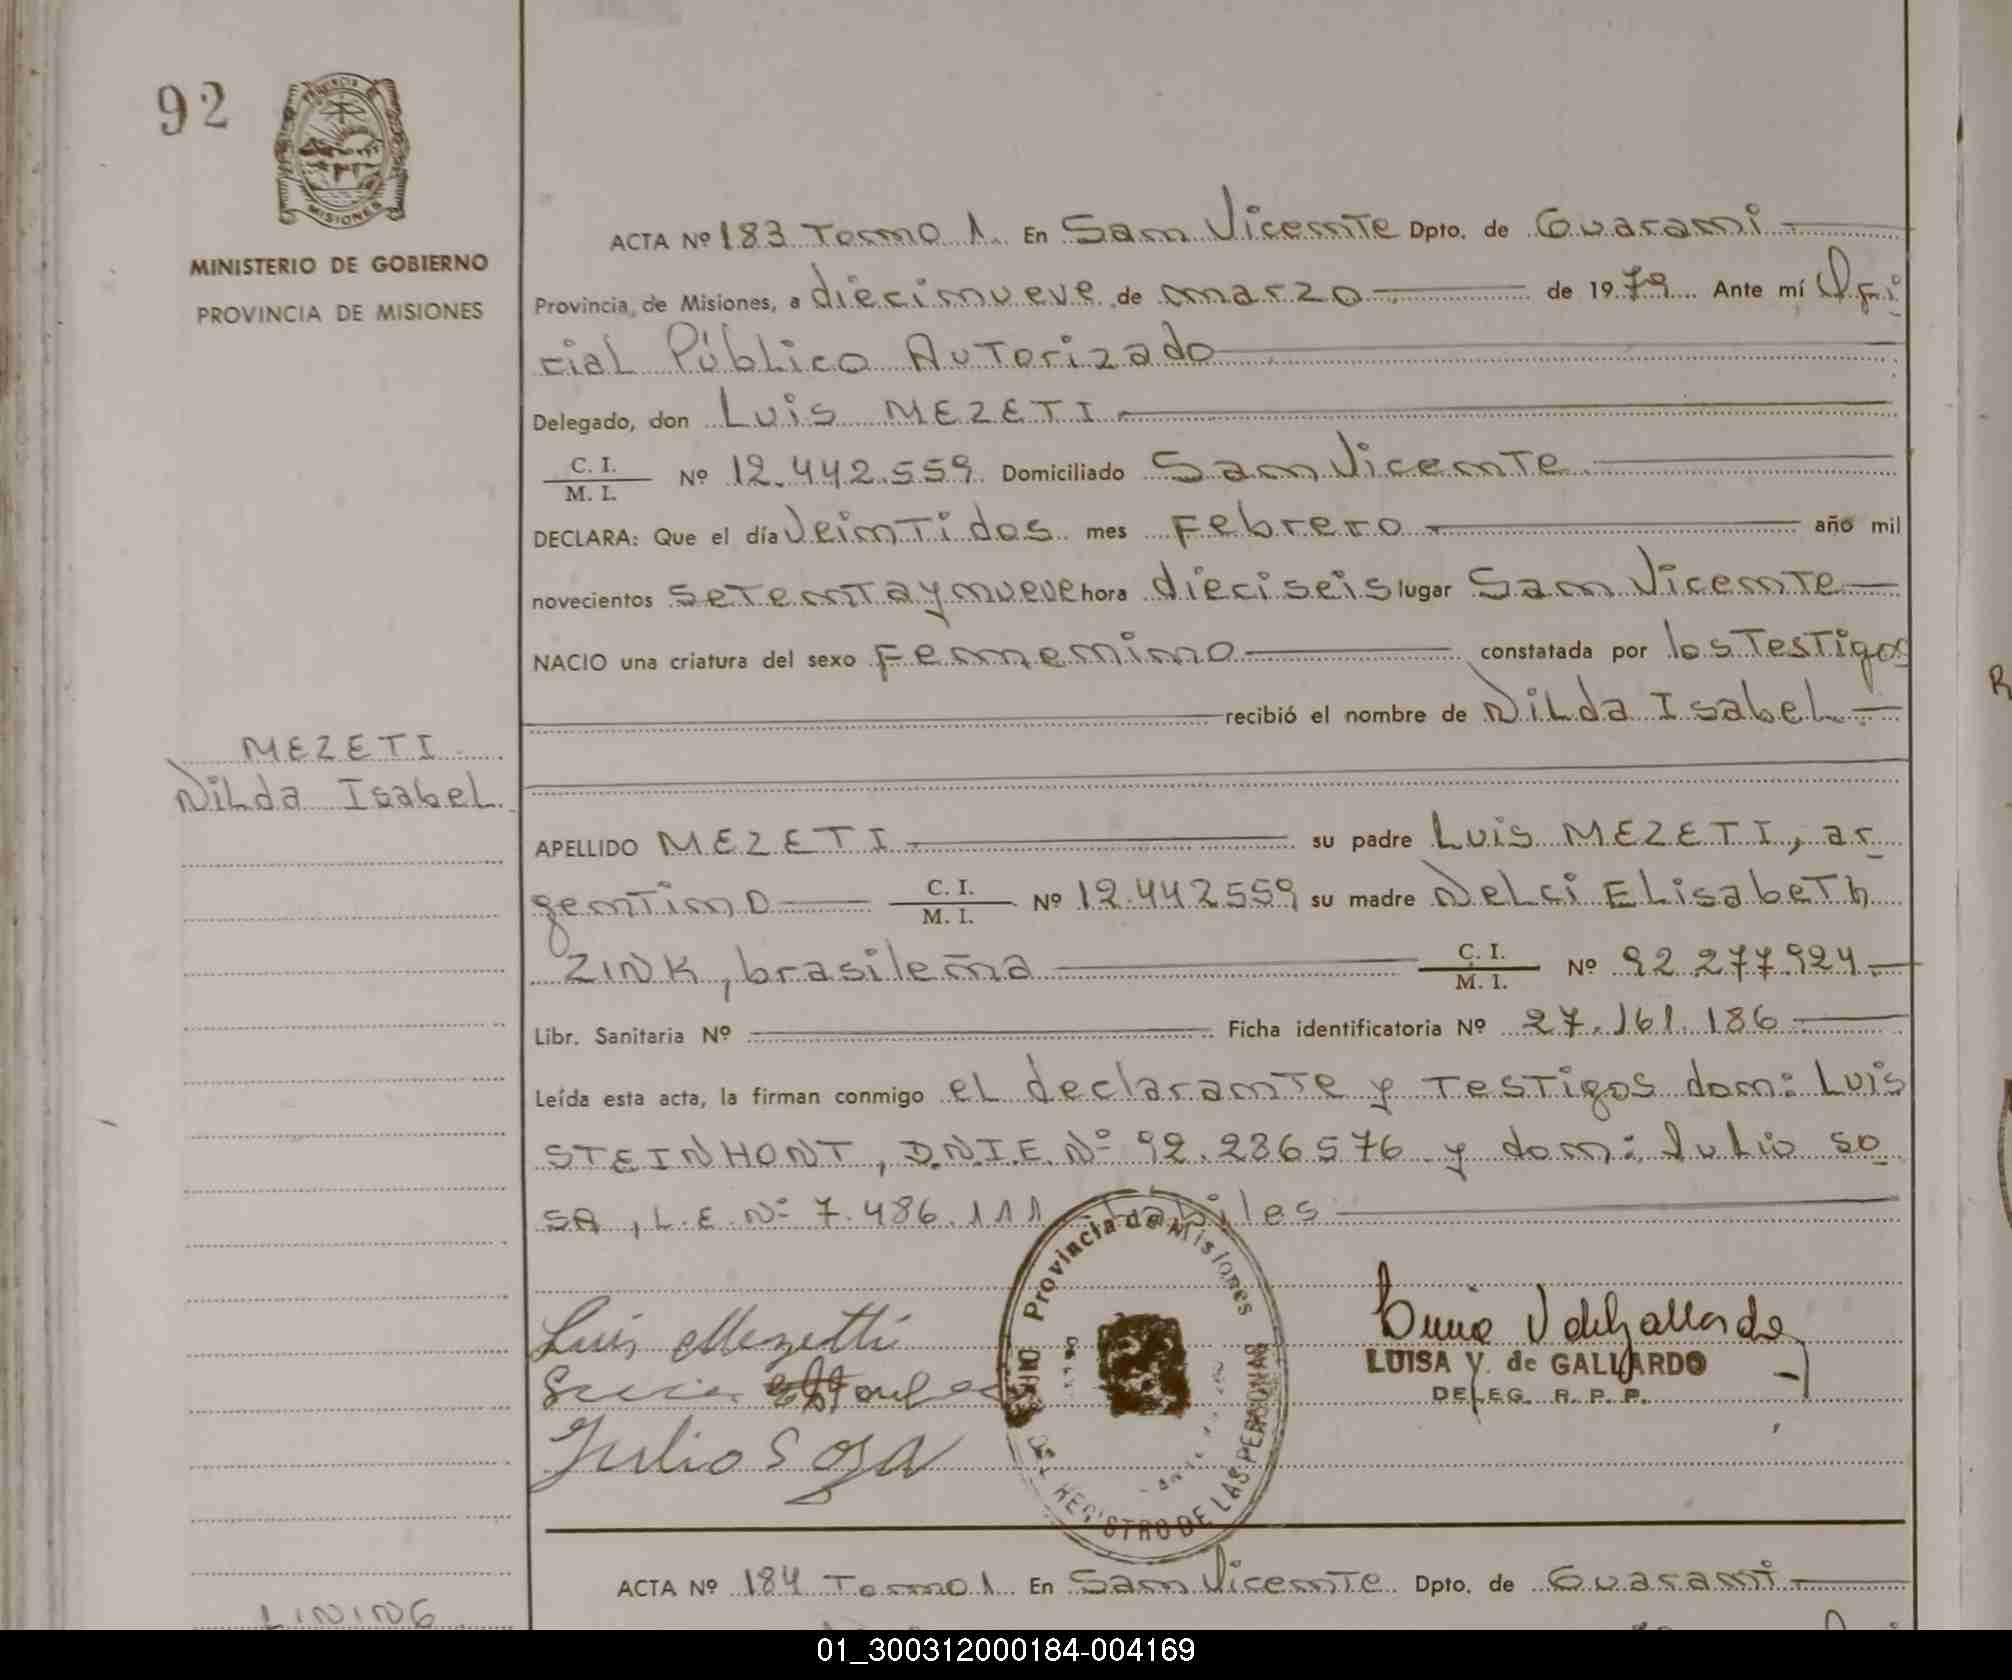 92
PROVINCIA DE
MISIONES
MINISTERIO DE GOBIERNO
PROVINCIA DE MISIONES
ACTA Nº 183 Tomo 1. En San Vicente Dpto. de Guarani
Provincia de Misiones, a diecinueve de marzo de 1979 Ante mí Ofi
cial Público Autorizado
Delegado, don Luis MEZETI
C. I.
M. I. Nº 12.442.559 Domiciliado San Vicente
DECLARA: Que el día Veintidos mes Febrero año mil
novecientos setenta y nueve hora dieciseis lugar San Vicente
NACIO una criatura del sexo Femenino constatada por los Testigos
recibió el nombre de Nilda Isabel
MEZETI
Nilda Isabel
APELLIDO MEZETI su padre Luis MEZETI, ar
gentino C. I.
M. I. Nº 12.442559 su madre Nelci Elisabeth
ZINK, brasileña C. I.
M. I. Nº 92.277.924
Libr. Sanitaria Nº Ficha identificatoria Nº 27.161.186
Leída esta acta, la firman conmigo el declarante y Testigos don: Luis
STEINHONT, D.N.I.E. Nº 92.286576 y don: Julio so
SA, L.E. Nº 7.486.111 habiles
Luis Mezetti
Julio Sosa
Provincia de Misiones
REGISTRO DE LAS PERSONAS
LUISA V. de GALLARDO
DELEG. R. P. P.
ACTA Nº 184 Tomo 1 En San Vicente Dpto. de Guarani
LINING
01_300312000184-004169